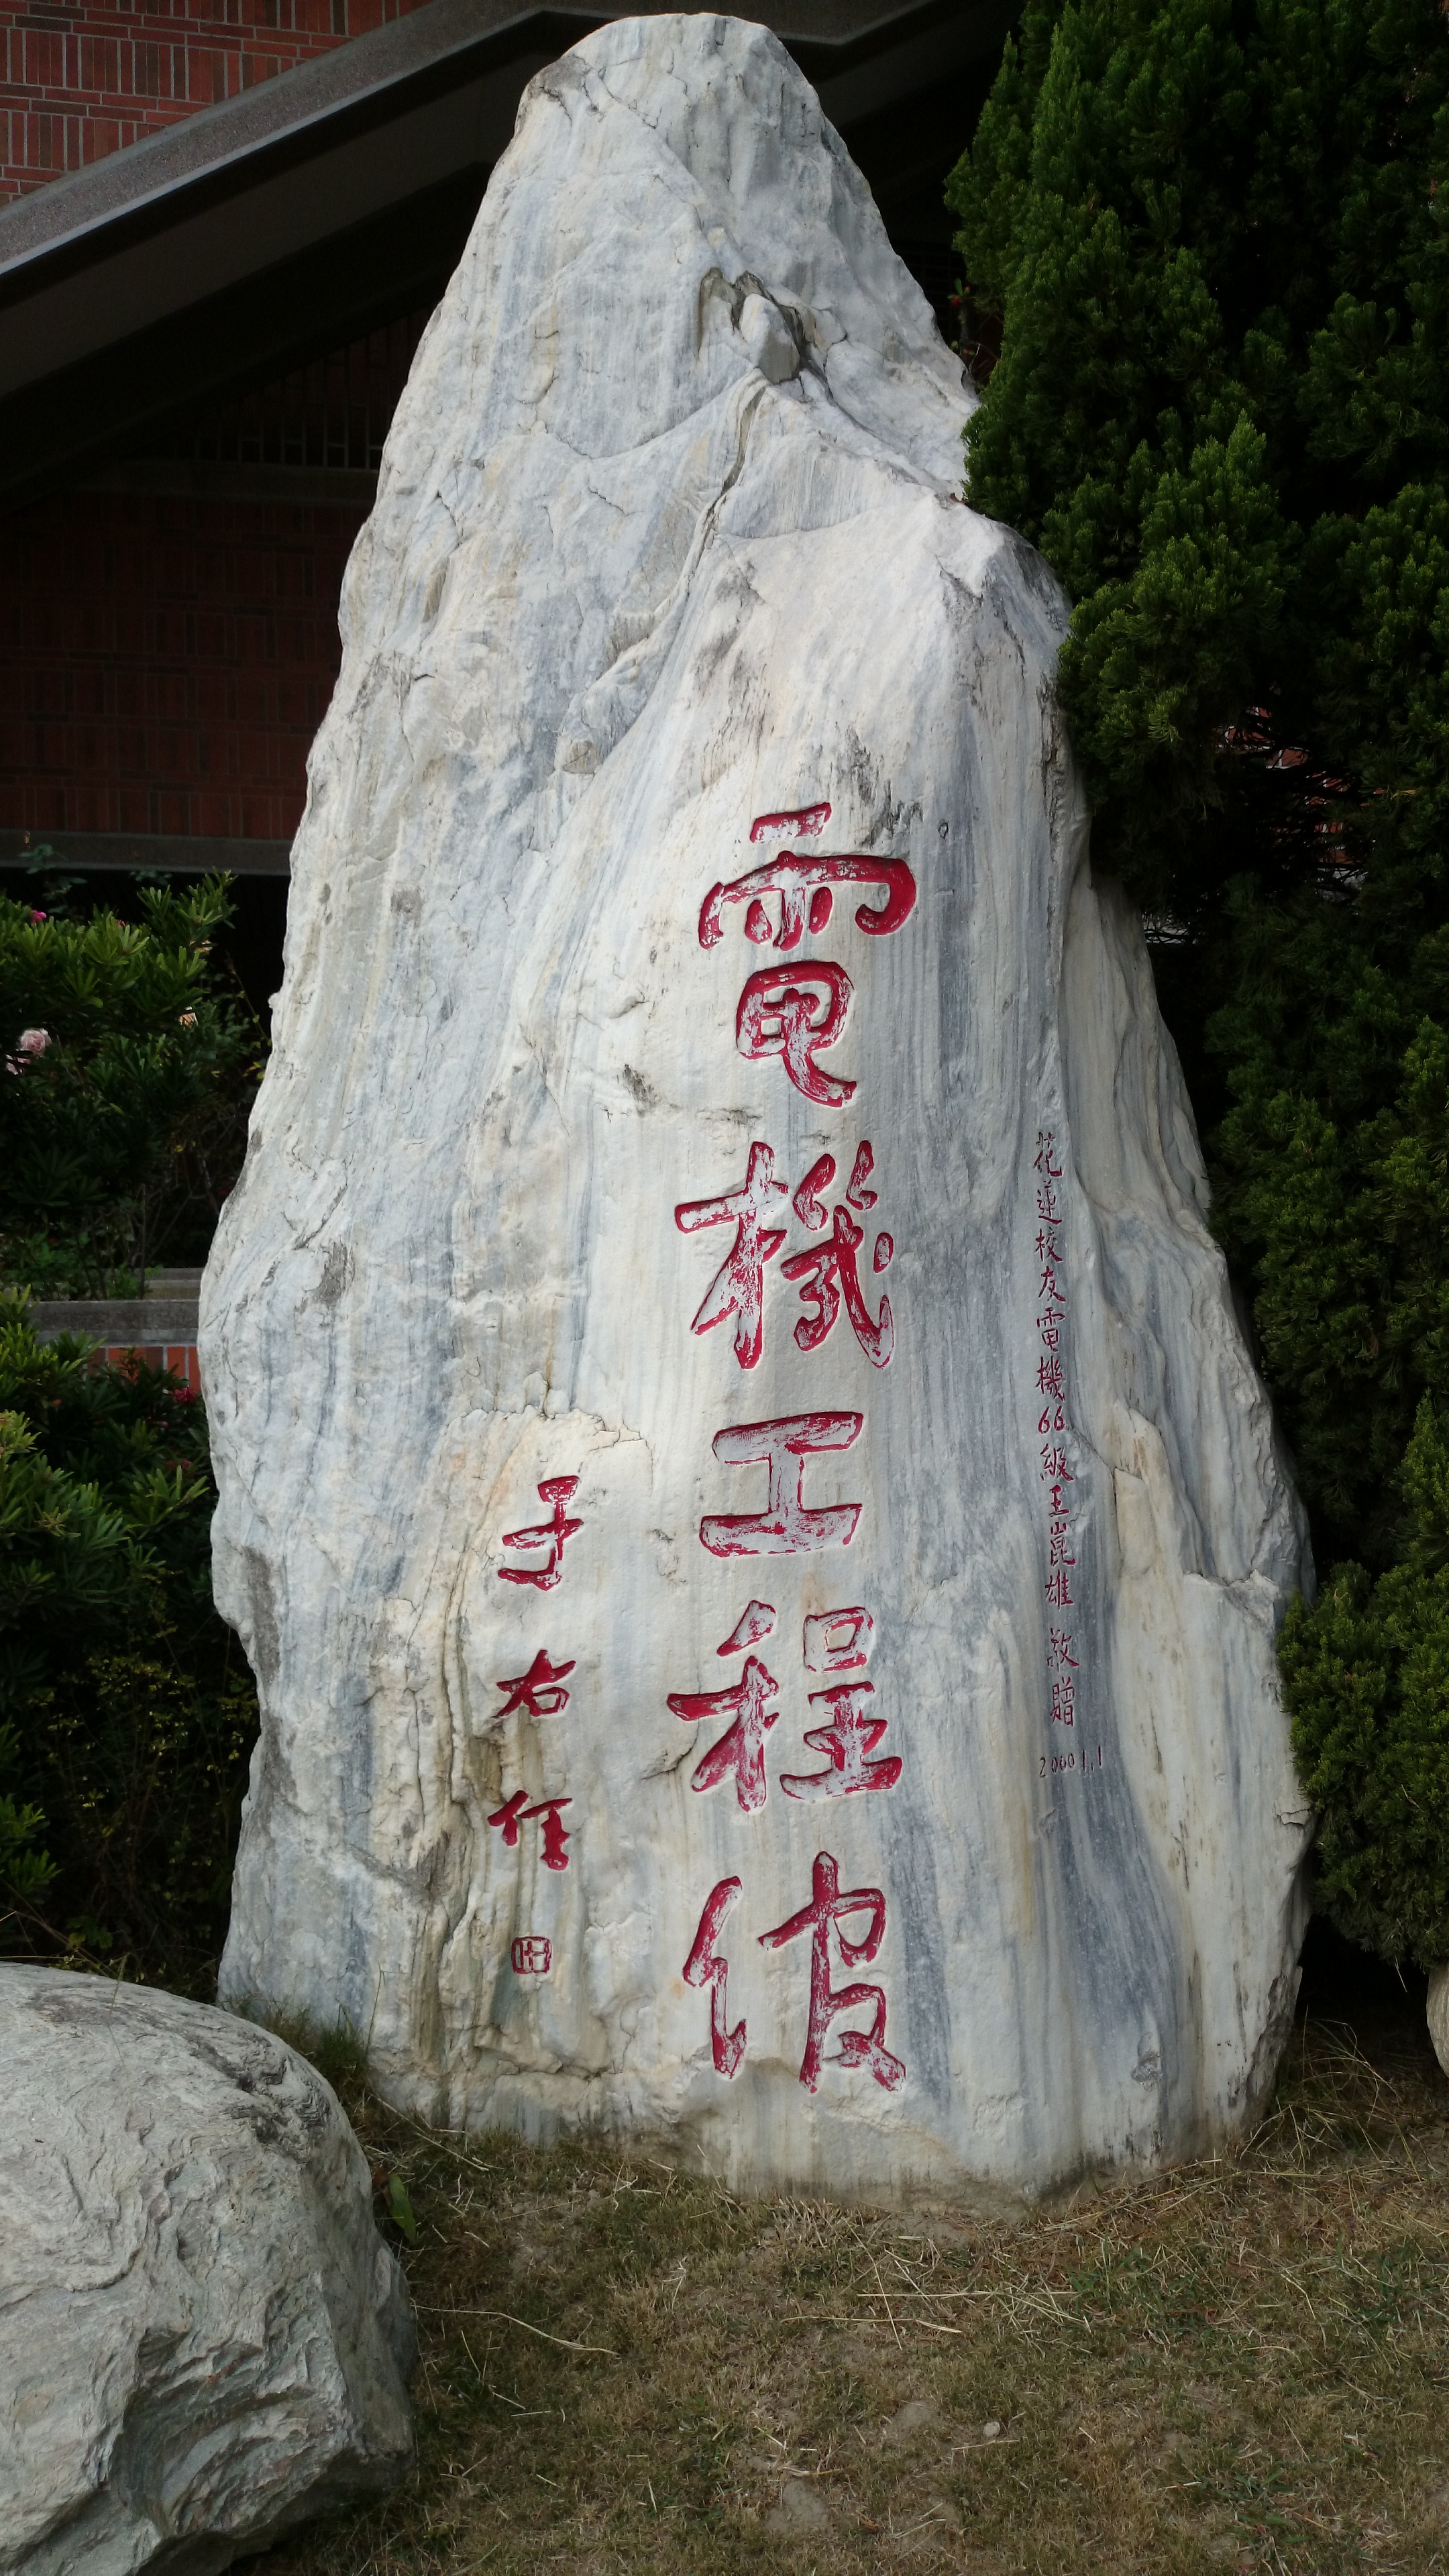 花蓮校友電機66級王崑雄 敬贈 2000.1.1
電機工程館
于右任